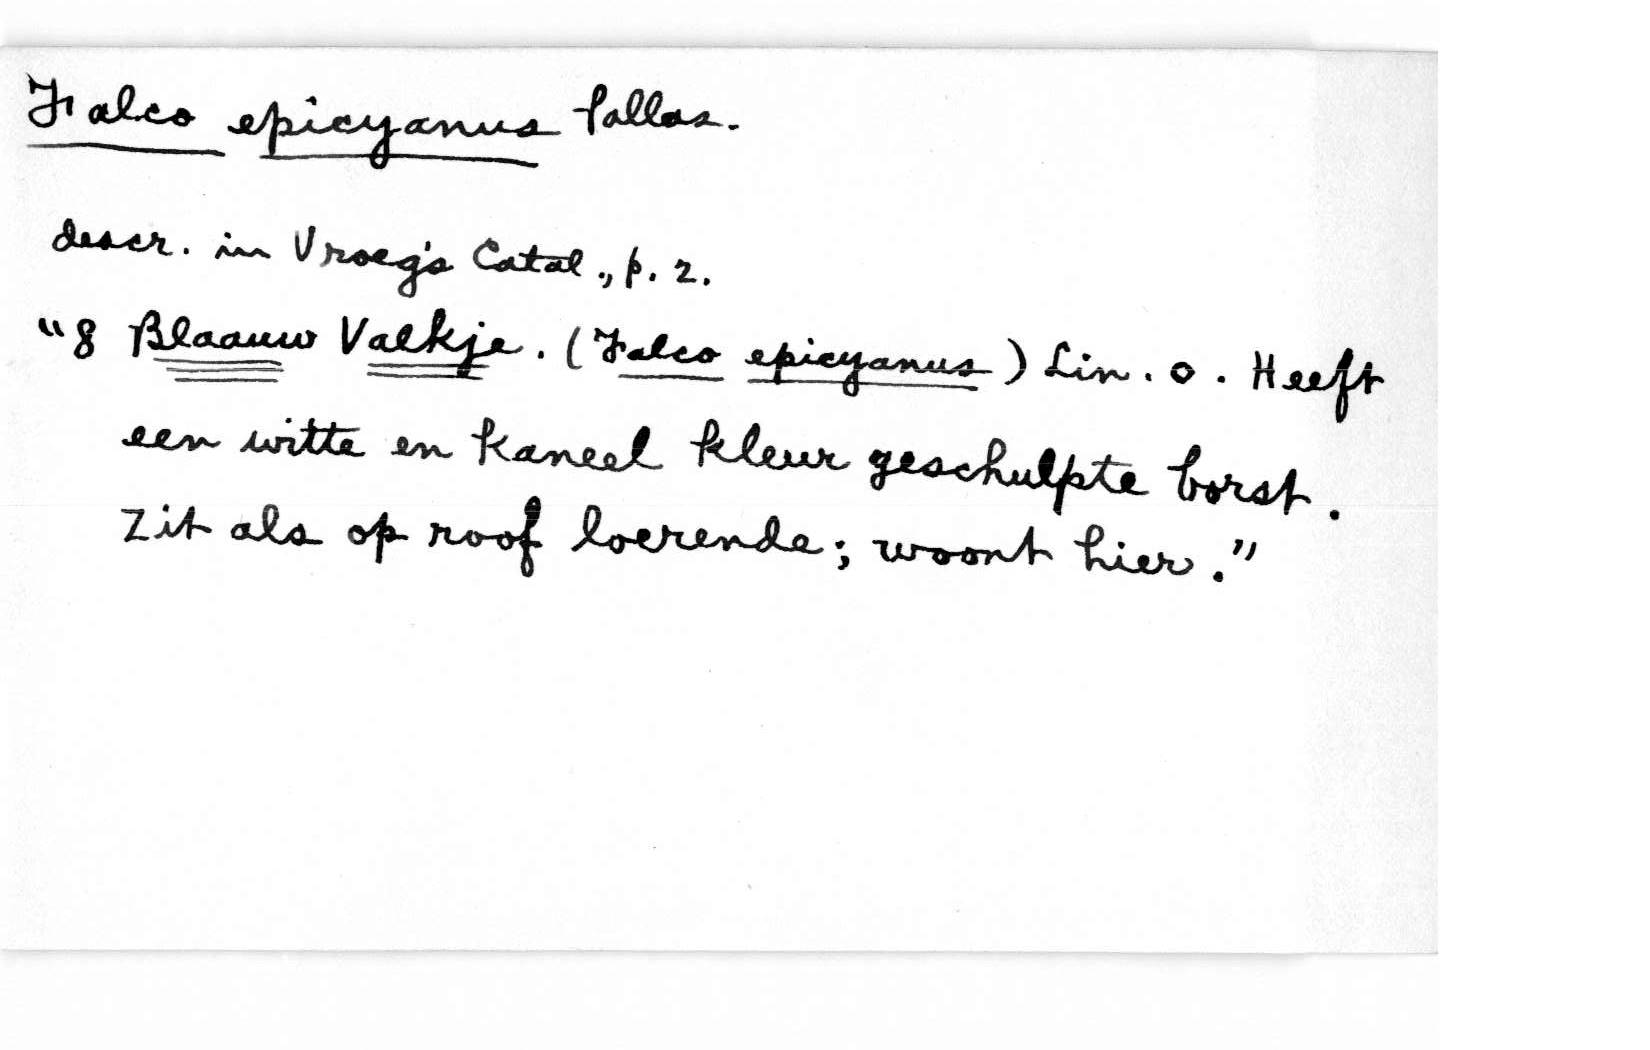 Falco epicyanus Pallas.
descr. in Vroeg's Catal., p. 2.
"8 Blaauw Valkje. (Falco epicyanus) Lin. o. Heeft
een witte en kaneel kleur geschulpte borst.
Zit als op roof loerende; woont hier."